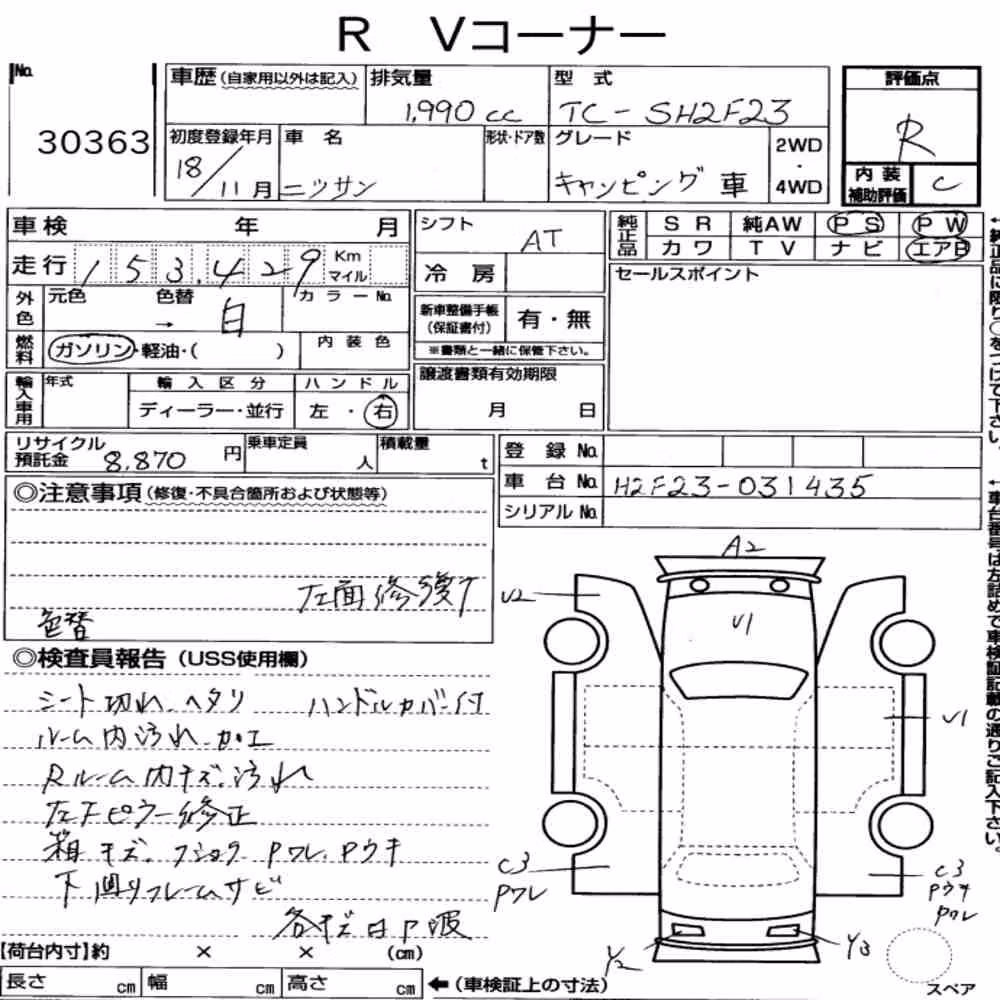 R Vコーナー
No.
30363
車歴(自家用以外は記入)
排気量
1,990 cc
型式
TC-SH2F23
評価点
R
内装補助評価
C
初度登録年月
18/11月
車名
ニッサン
形状・ドア数
グレード
キャンピング車
2WD・4WD
車検 年 月
走行 153,429 Km マイル
外色
元色 色替 → 白
カラーNo.
燃料
ガソリン・軽油・( )
内装色
輸入車用
年式
輸入区分
ディーラー・並行
ハンドル
左・右
シフト
AT
冷房
新車整備手帳(保証書付)
有・無
※書類と一緒に保管下さい。
譲渡書類有効期限
月 日
純正品
SR 純AW PS PW
カワ TV ナビ エアB
セールスポイント
←純正品に限り○をつけて下さい。
リサイクル預託金 8,870 円
乗車定員 人
積載量 t
登録No.
車台No. H2F23-031435
シリアルNo.
←車台番号は左詰めで車検証記載の通りご記入下さい。
◎注意事項(修復・不具合箇所および状態等)
左面修復
色替
◎検査員報告(USS使用欄)
シート切れ、ヘタリ ハンドルカバー付
ルーム内汚れ、加工
Rルーム内キズ、汚れ
左Fピラー修正
箱キズ、フショク Pワレ、Pウキ
下回りフレームサビ
各キズ凹P波
A2
U2
U1
U1
C3
Pワレ
C3
Pウキ
Pワレ
Y2
Y3
スペア
【荷台内寸】約 × × (cm)
長さ cm 幅 cm 高さ cm ←(車検証上の寸法)